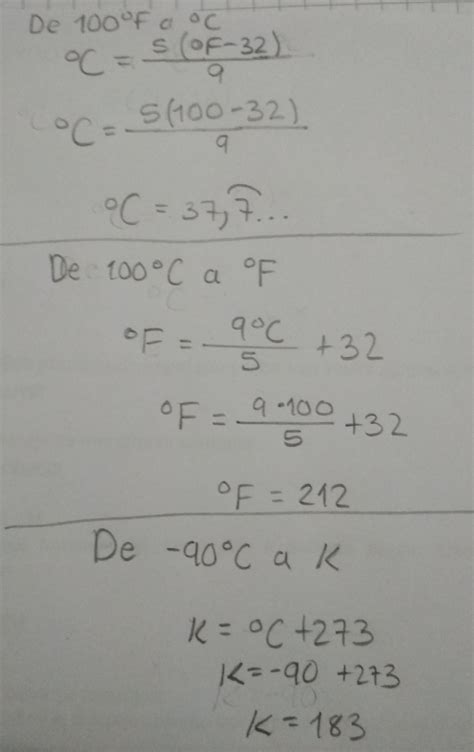 De 100°F a °C
°C = 5(°F-32)/9
°C = 5(100-32)/9
°C = 37,7...
De 100°C a °F
°F = 9°C/5 + 32
°F = 9·100/5 + 32
°F = 212
De -90°C a K
K = °C + 273
K = -90 + 273
K = 183